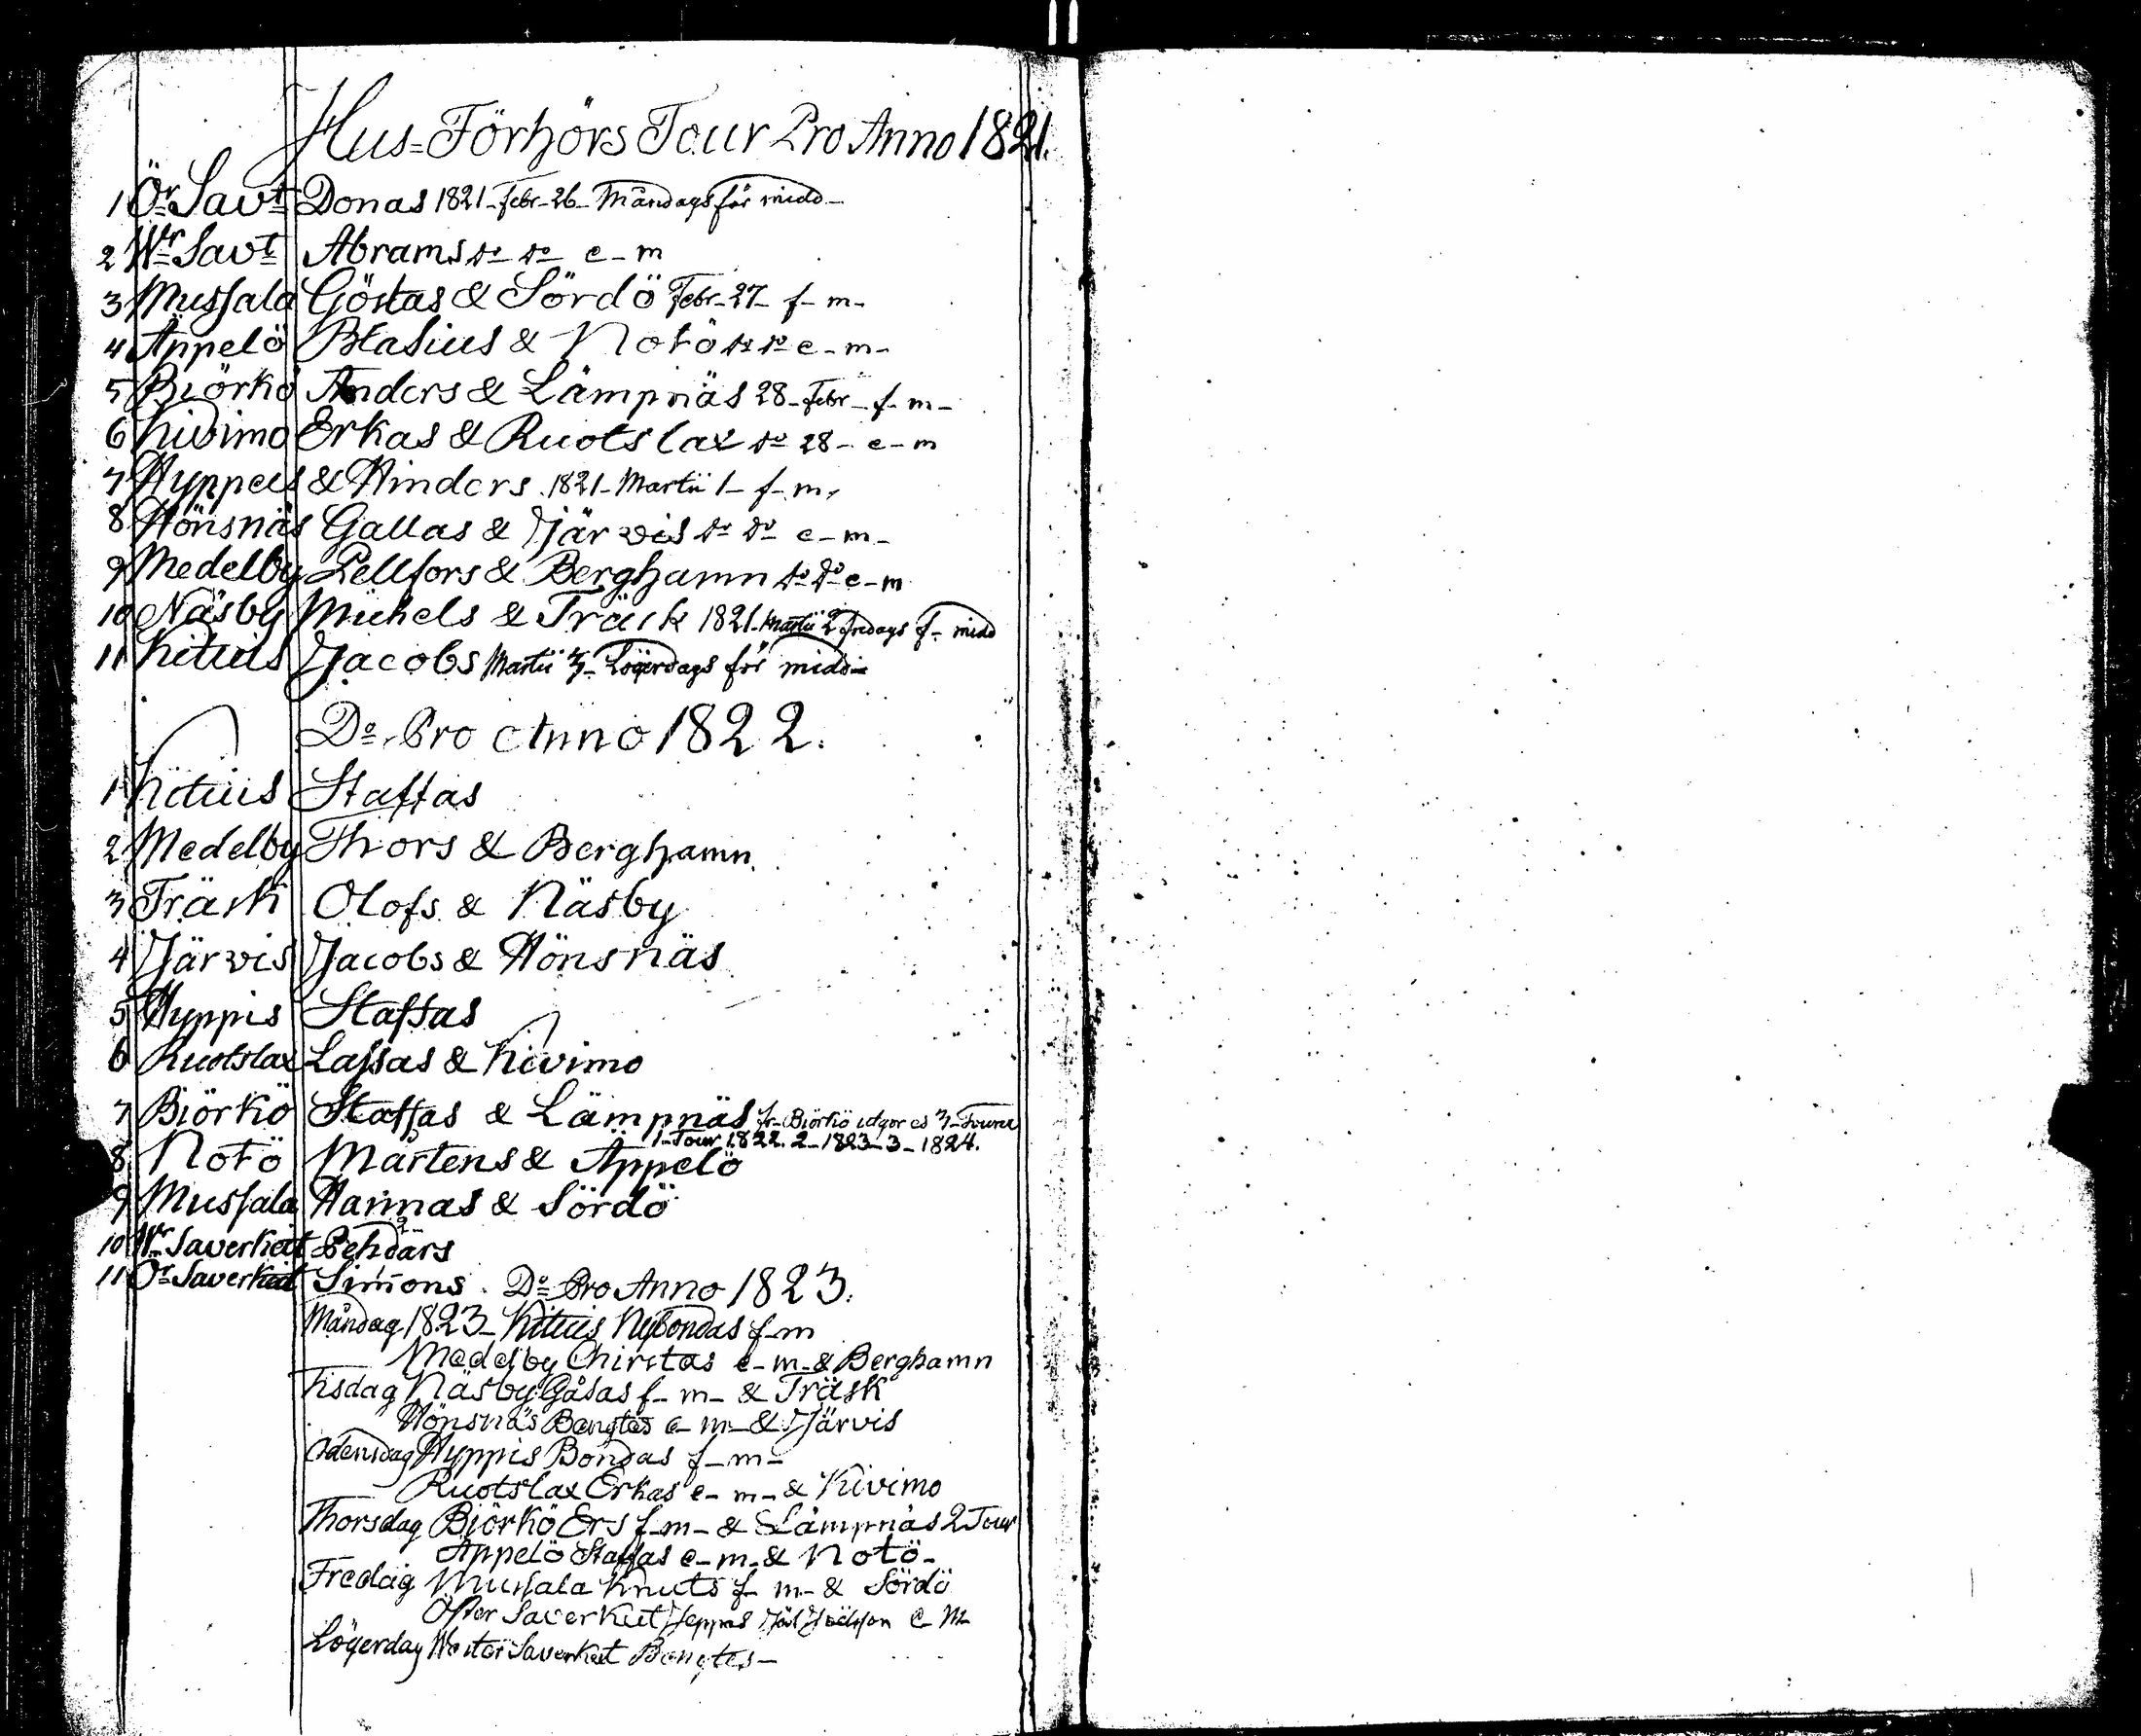 Hus-Förhörs Tour Pro Anno 1821.
1 Ö:r Sav:t Donas 1821 - Febr - 26 - Måndags för midd -
2 W:r Sav:t Abrams d:o d:o e - m
3 Mussala Göstas & Sördö Febr - 27 - f - m -
4 Äppelö Blasius & Notö d:o d:o e - m -
5 Biörkö Anders & Lämpnäs 28 - Febr - f - m -
6 Kivimo Erkas & Ruotslax d:o 28 - e - m
7 Hyppeis & Hinders. 1821 - Martii 1 - f - m.
8 Hönsnäs Gallas & Järvis d:o d:o e - m -
9 Medelby Pellfors & Berghamn d:o d:o e - m
10 Näsby Michels & Träsk 1821 - Martii 2 fredags f - midd
11 Kituis Jacobs Martii 3 - Lögerdags för midd -
D:o Pro Anno 1822.
1 Kituis Staffas
2 Medelby Thors & Berghamn
3 Träsk Olofs & Näsby
4 Järvis Jacobs & Hönsnäs
5 Hyppis Staffas
6 Ruotslax Lassas & Kivimo
7 Biörkö Staffas & Lämpnäs fr - Biörkö utgör es 3 - Tourer
1 - Tour 1822. 2 - 1823 - 3 - 1824.
8 Notö Mårtens & Äppelö
9 Mussala Hannas & Sördö
10 W:r Saverkeit Pehdärs
11 Ö:r Saverkeit Simons. D:o Pro Anno 1823.
Måndag 1823 - Kituis Nybondas f - m
Medelby Christas e - m - & Berghamn
Tisdag Näsby Gåsas f - m - & Träsk
Hönsnäs Bengtes e - m - & Järvis
Odensdag Hyppis Bondas f - m -
Ruotslax Erkas e - m - & Kivimo
Thorsdag Biörkö Ers f - m - & Lämpnäs 2 Tour
Äppelö Staffas e - m - & Notö -
Fredag Mussala Knuts f - m - & Sördö
Öster Saverkeit Jeppas e - m
Lögerdag Wester Saverkeit Bengtes -